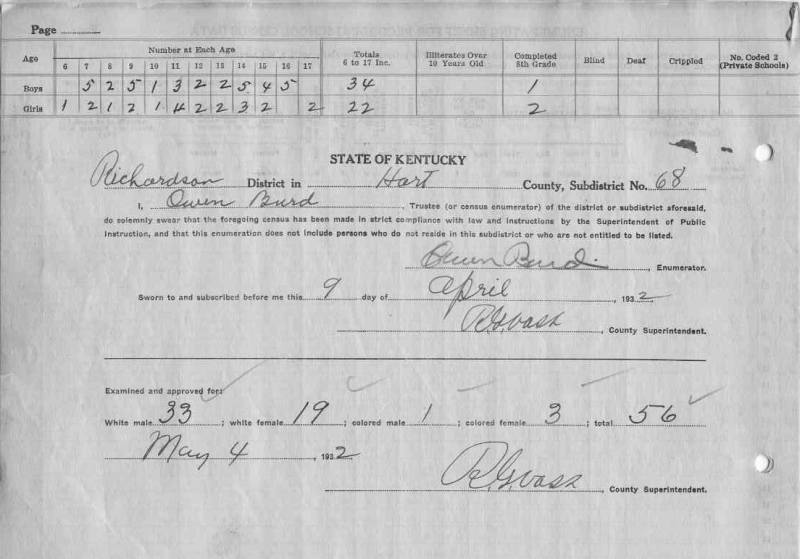 Page
Age Number at Each Age Totals 6 to 17 Inc. Illiterates Over 10 Years Old Completed 8th Grade Blind Deaf Crippled No. Coded 2 (Private Schools)
6 7 8 9 10 11 12 13 14 15 16 17
Boys 5 2 5 1 3 2 2 5 4 5 34 1
Girls 1 2 1 2 1 4 2 2 3 2 2 22 2
STATE OF KENTUCKY
Richardson District in Hart County, Subdistrict No. 68
I, Owen Burd, Trustee (or census enumerator) of the district or subdistrict aforesaid,
do solemnly swear that the foregoing census has been made in strict compliance with law and instructions by the Superintendent of Public
Instruction, and that this enumeration does not include persons who do not reside in this subdistrict or who are not entitled to be listed.
Owen Burd, Enumerator.
Sworn to and subscribed before me this 9 day of April, 1932
County Superintendent.
Examined and approved for:
White male 33; white female 19; colored male 1; colored female 3; total 56
May 4, 1932
County Superintendent.